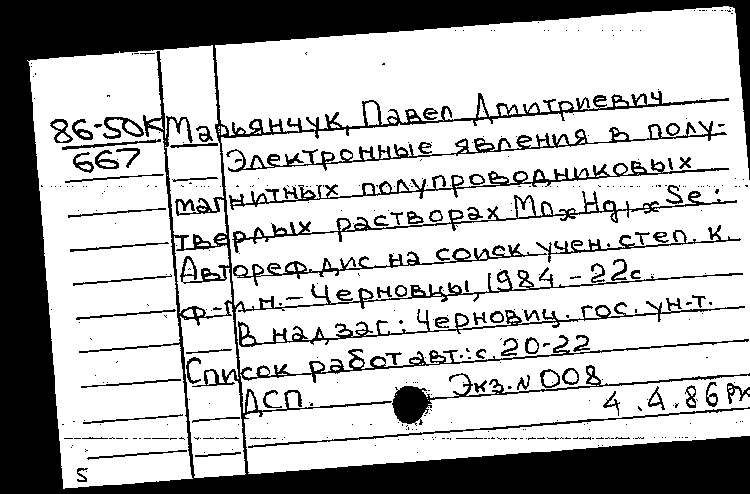 86-50К Марьянчук, Павел Дмитриевич
667 Электронные явления в полу-
магнитных полупроводниковых
твердых растворах MnxHg1-xSe:
Автореф. дис на соиск. учен. степ. к.
ф.-м.н. - Черновцы, 1984. - 22с.
В надзаг: Черновиц. гос. ун-т.
Список работ авт.: с. 20-22
ДСП. Экз. N 008
4.4.86 РК
5